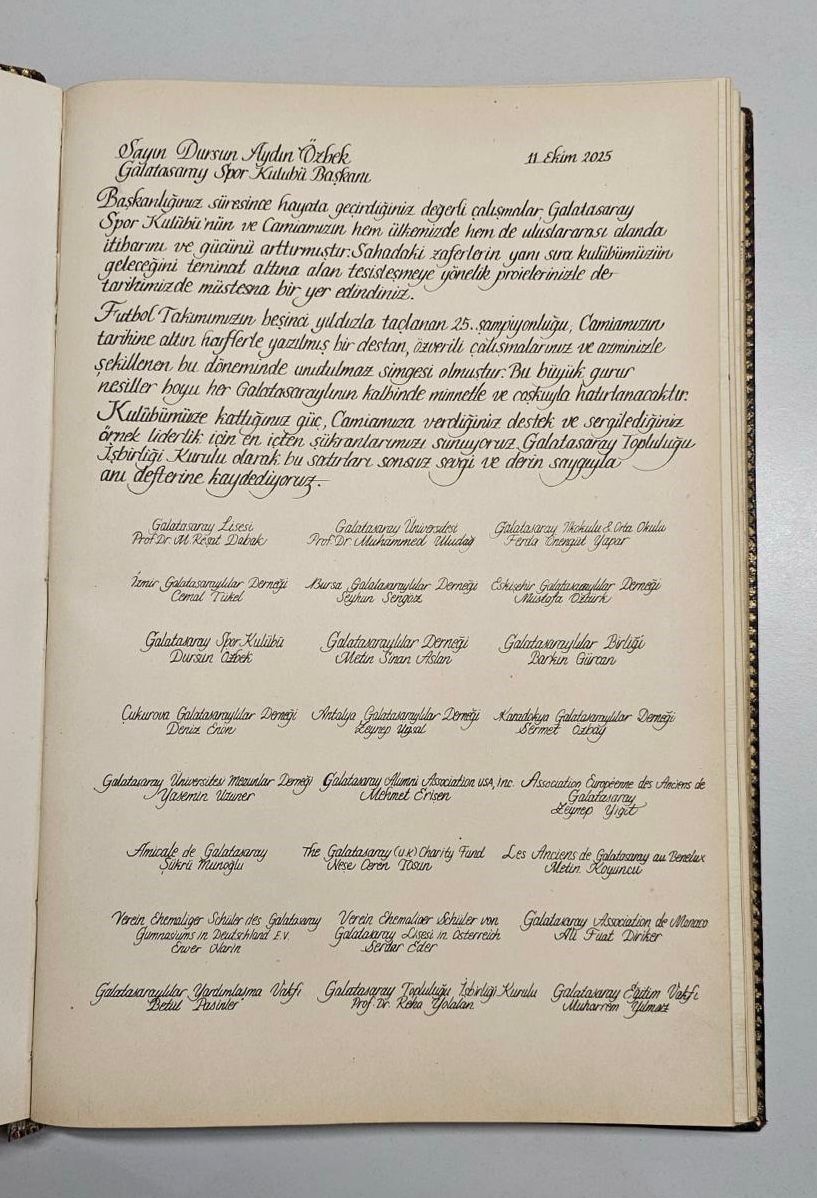 Sayın Dursun Aydın Özbek
11 Ekim 2025
Galatasaray Spor Kulübü Başkanı
Başkanlığınız süresince hayata geçirdiğiniz değerli çalışmalar, Galatasaray
Spor Kulübü'nün ve Camiamızın hem ülkemizde hem de uluslararası alanda
itibarını ve gücünü arttırmıştır. Sahadaki zaferlerin yanı sıra kulübümüzün
geleceğini teminat altına alan tesisleşmeye yönelik projelerinizle de
tarihimizde müstesna bir yer edindiniz.
Futbol Takımımızın beşinci yıldızla taçlanan 25. şampiyonluğu, Camiamızın
tarihine altın harflerle yazılmış bir destan, özverili çalışmalarınız ve azminizle
şekillenen bu döneminde unutulmaz simgesi olmuştur. Bu büyük gurur
nesiller boyu her Galatasaraylının kalbinde minnetle ve coşkuyla hatırlanacaktır.
Kulübümüze kattığınız güç, Camiamıza verdiğiniz destek ve sergilediğiniz
örnek liderlik için en içten şükranlarımızı sunuyoruz. Galatasaray Topluluğu
İşbirliği Kurulu olarak bu satırları sonsuz sevgi ve derin saygıyla
anı defterine kaydediyoruz.
Galatasaray Lisesi
Prof. Dr. M. Reşat Dabak
Galatasaray Üniversitesi
Prof. Dr. Muhammed Uludağ
Galatasaray İlkokulu & Orta Okulu
Ferda Önengüt Yapar
İzmir Galatasaraylılar Derneği
Cemal Tükel
Bursa Galatasaraylılar Derneği
Seyhun Şengöz
Eskişehir Galatasaraylılar Derneği
Mustafa Öztürk
Galatasaray Spor Kulübü
Dursun Özbek
Galatasaraylılar Derneği
Metin Sinan Aslan
Galatasaraylılar Birliği
Barkın Gürcan
Çukurova Galatasaraylılar Derneği
Deniz Enön
Antalya Galatasaraylılar Derneği
Zeynep Uysal
Kapadokya Galatasaraylılar Derneği
Sermet Özbay
Galatasaray Üniversitesi Mezunlar Derneği
Yasemin Uzuner
Galatasaray Alumni Association USA, Inc.
Mehmet Erişen
Association Européenne des Anciens de
Galatasaray
Zeynep Yiğit
Amicale de Galatasaray
Şükrü Munoğlu
The Galatasaray (U.K) Charity Fund
Neşe Ceren Tosun
Les Anciens de Galatasaray au Benelux
Metin Koyuncu
Verein Ehemaliger Schüler des Galatasaray
Gymnasiums in Deutschland E.V.
Enver Narin
Verein Ehemaliger Schüler von
Galatasaray Lisesi in Österreich
Serdar Eder
Galatasaray Association de Monaco
Ali Fuat Diriker
Galatasaraylılar Yardımlaşma Vakfı
Betül Pasinler
Galatasaray Topluluğu İşbirliği Kurulu
Prof. Dr. Reha Yolalan
Galatasaray Eğitim Vakfı
Muharrem Yılmaz